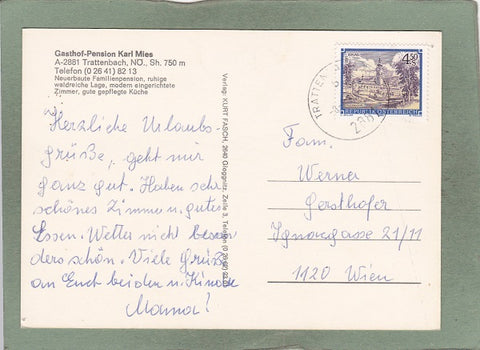 Gasthof-Pension Karl Mies
A-2881 Trattenbach, NÖ., Sh. 750 m
Telefon (0 26 41) 82 13
Neuerbaute Familienpension, ruhige
waldreiche Lage, modern eingerichtete
Zimmer, gute gepflegte Küche
Herzliche Urlaubs-
grüße, geht mir
ganz gut. Haben sehr
schönes Zimmer u. gutes
Essen. Wetter nicht beson
ders schön. Viele Grüße
an Euch beiden u. Kinder
Mama!
Verlag: KURT FASCH, 2640 Gloggnitz, Zeile 3, Telefon
TRATTEN
4.50
REPUBLIK ÖSTERREICH
Fam.
Werner
Gersthofer
Ignazgasse 21/11
1120 Wien